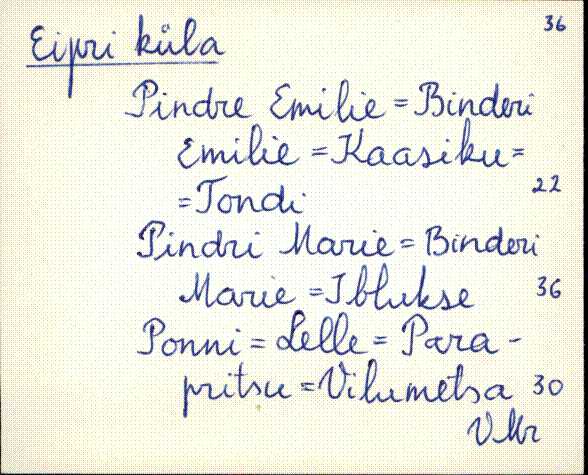 36
Eipri küla
Pindre Emilie = Binderi
Emilie = Kaasiku =
= Tondi 22
Pindri Marie = Binderi
Marie = Iblukse 36
Ponni = Lelle = Para -
pritsu = Vilumetsa 30
VMr